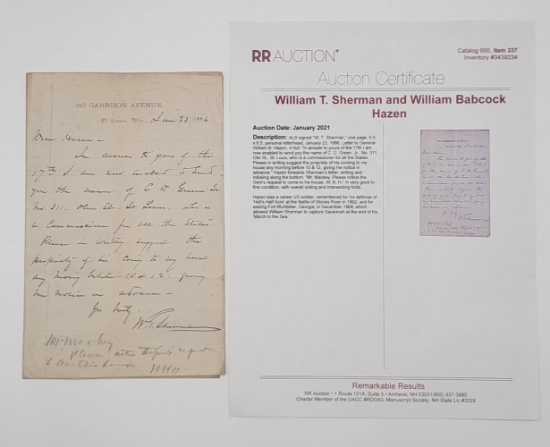 912 GARRISON AVENUE,
St. Louis, Mo. Jan 23 1886
Dear Hazen
In answer to yours of the
17th I am now enabled to send
you the name of C. D. Greene Jr.
No 311 Olive St. St. Louis, who is
a Commissioner for all the States
Please in writing suggest the
propriety of his coming to my house
any morning before 10 & 12, giving
me notice in advance -
Yrs truly
W. T. Sherman
Mr. Mackey
Please notice the Genl's request
to come to his house
W B H
RR AUCTION
Catalog 600, Item 337
Inventory #5439234
Auction Certificate
William T. Sherman and William Babcock
Hazen
Auction Date: January 2021
Description: ALS signed "W. T. Sherman," one page, 5.5
x 8.5, personal letterhead, January 23, 1886. Letter to General
William B. Hazen, in full: "In answer to yours of the 17th I am
now enabled to send you the name of C. D. Green, Jr. No. 311
Oliv St., St. Louis, who is a commissioner for all the States.
Please in writing suggest the propriety of his coming to my
house any morning before 10 & 12, giving me notice in
advance." Hazen forwards Sherman's letter, writing and
initialing along the bottom: "Mr. Mackey, Please notice the
Genl's request to come to his house. W. B. H." In very good to
fine condition, with overall soiling and intersecting folds.
Hazen was a career US soldier, remembered for his defense of
'Hell's Half-Acre' at the Battle of Stones River in 1862, and for
seizing Fort McAllister, Georgia, in December 1864, which
allowed William Sherman to capture Savannah at the end of his
'March to the Sea.'
Remarkable Results
RR Auction | 1 Route 101A, Suite 3 • Amherst, NH 03031/(800) 937-3880
Charter Member of the UACC #RD043, Manuscript Society, NH State Lic #3029